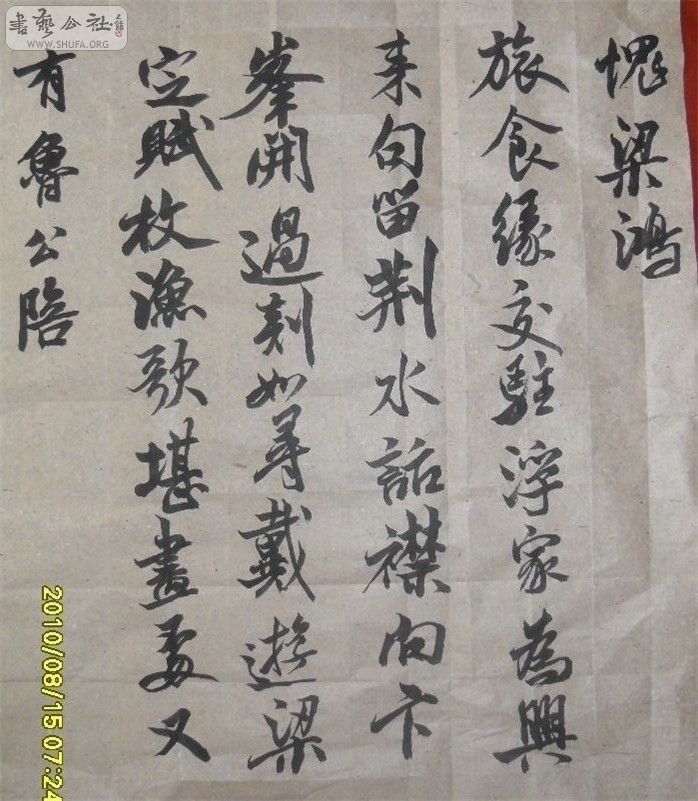 愧梁鴻
旅食緣交駐浮家為興
来句留荆水話襟向卞
峯開過剡如尋戴遊梁
定賦枚漁歌堪畫處又
有魯公陪
書藝公社
WWW.SHUFA.ORG
2010/08/15 07:24